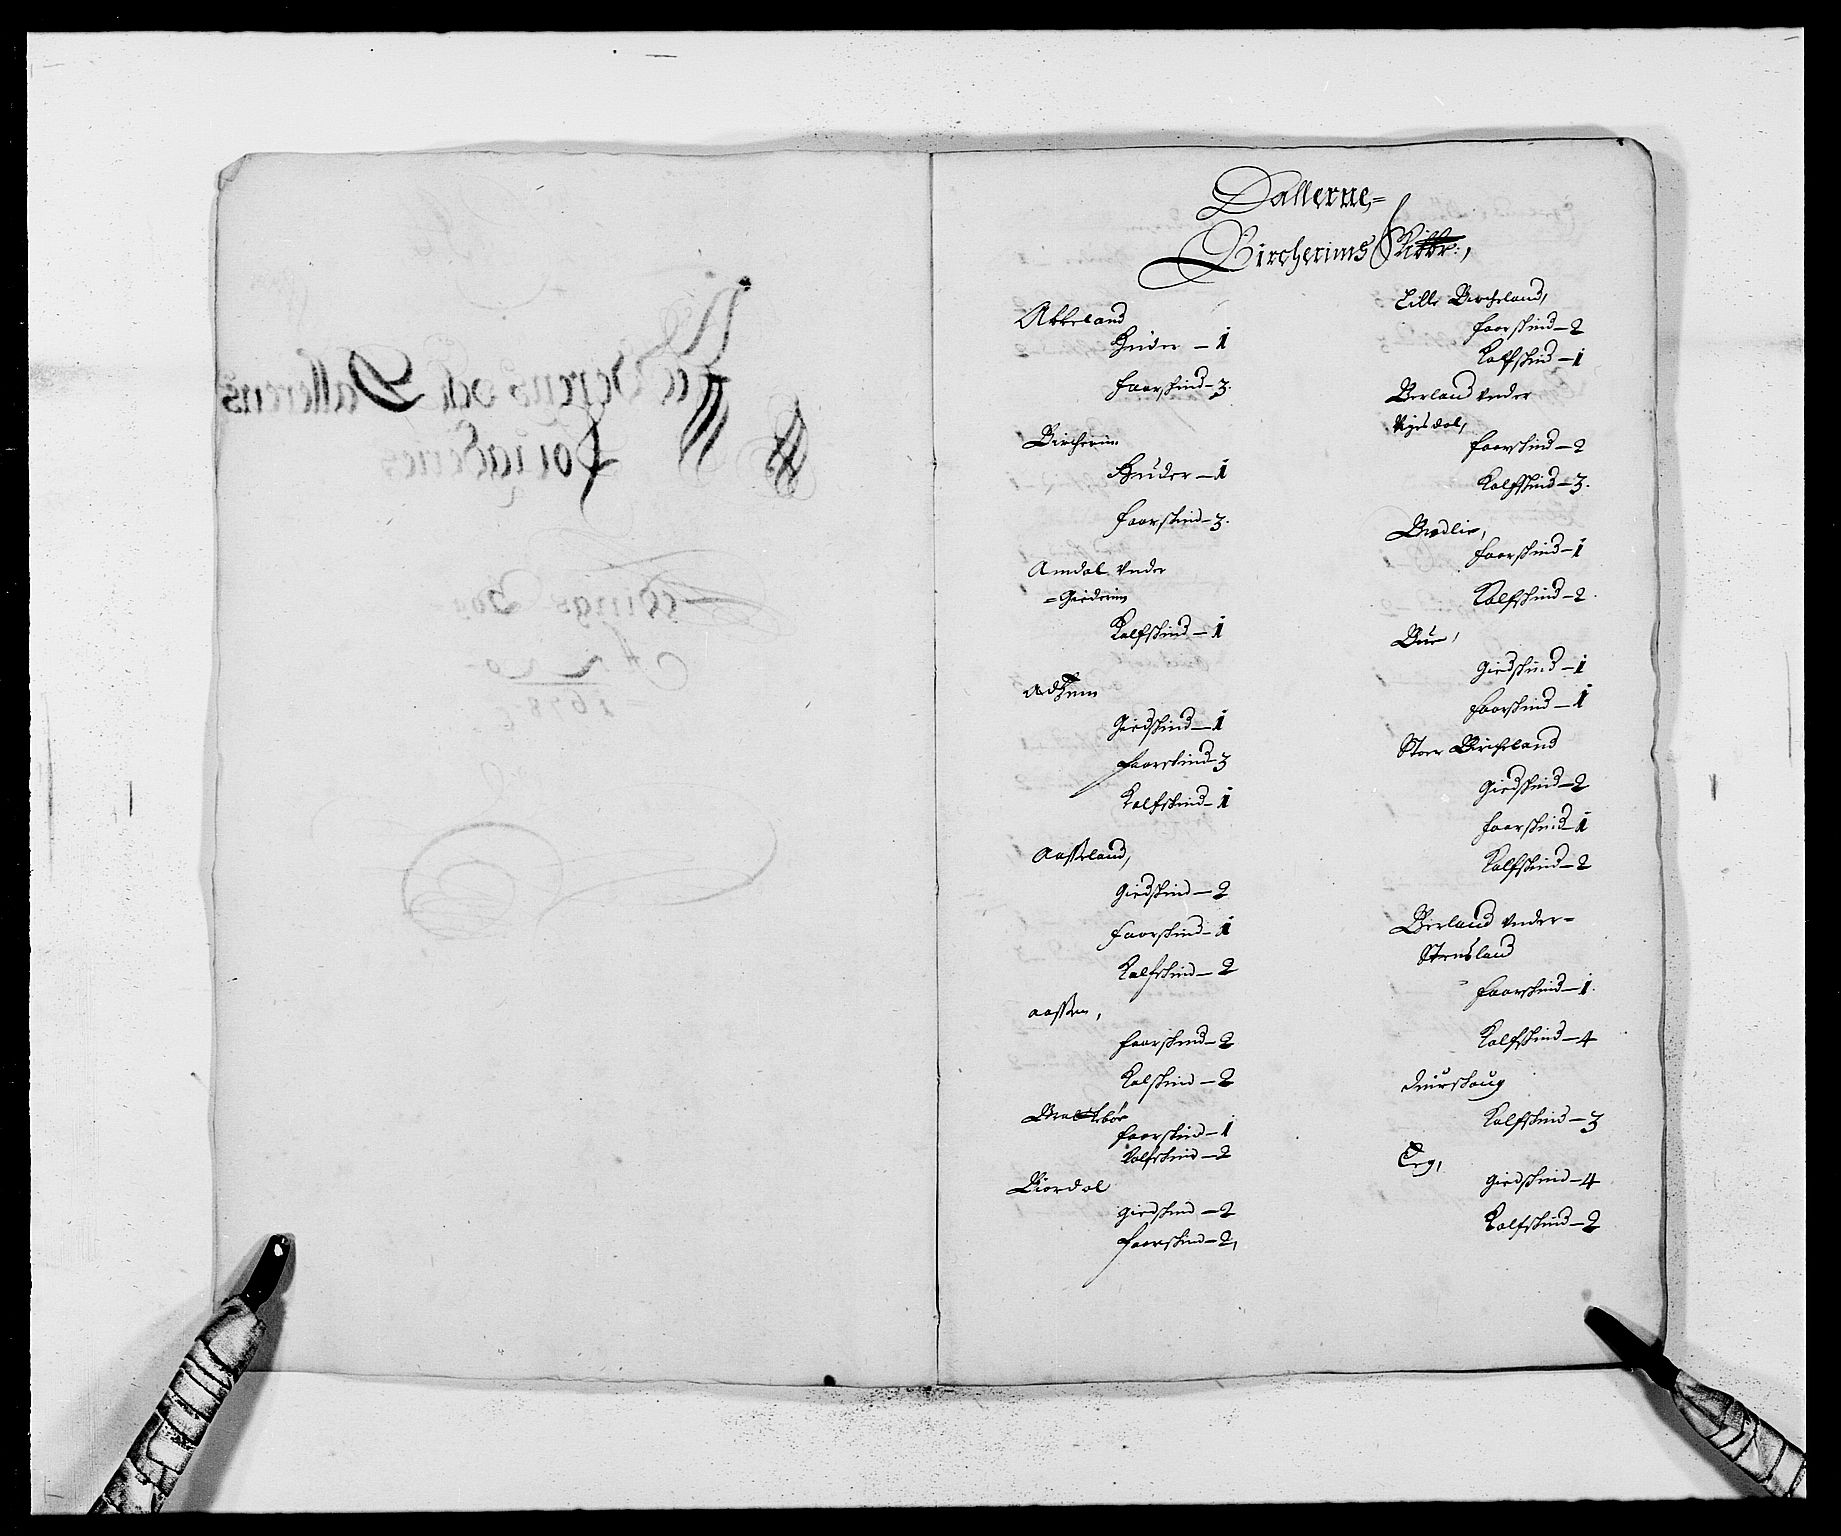 Dallerne,=
Bircherims Skibbr:,
Akkeland
Huder — 1
Faarskind — 3.
Bircherim
Huder — 1
Faarskind — 3.
Amdal Vnder
= Giederim
Kalfskind — 1
Adheim
Giedskind — 1
Faarskind 3
Kalfskind — 1
Aasseland,
Giedskind — 2
Faarskind — 1
Kalfskind — 2
Aassen,
Faarskind — 2
Kalskind — 2
Faarskind — 1
Kalfskind — 2
Biordal
Giedskind — 2
Faarskind — 2,
Lille Bircheland,
Faarskind — 2
Kalfskind — 1
Berland Vnder
Rigsdal,
Faarskind — 2
Kalfskind — 3.
Brødlie,
Faarskind — 1
Kalfskind — 2.
Bue,
Giedskind — 1
Faarskind — 1
Stoer Bircheland
Giedskind — 2
Faarskind — 1
Kalfskind — 2
Berland Vnder =
Stensland
Faarskind — 1.
Kalfskind — 4
Drivrshoug
Kalfskind — 3
Eeg,
Giedskind — 4
Kalfskind — 2